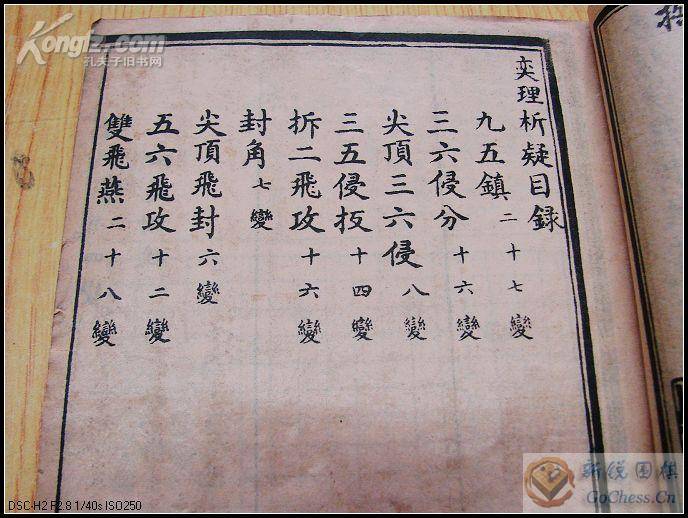 奕理析疑目録
九五鎮 二十七變
三六侵分 十六變
尖頂三六侵 八變
三五侵扳 十四變
拆二飛攻 十六變
封角 七變
尖頂飛封 六變
五六飛攻 十二變
雙飛燕 二十八變
Kongfz.com
孔夫子旧书网
新锐围棋
GoChess.Cn
DSC-H2 F2.8 1/40s ISO250